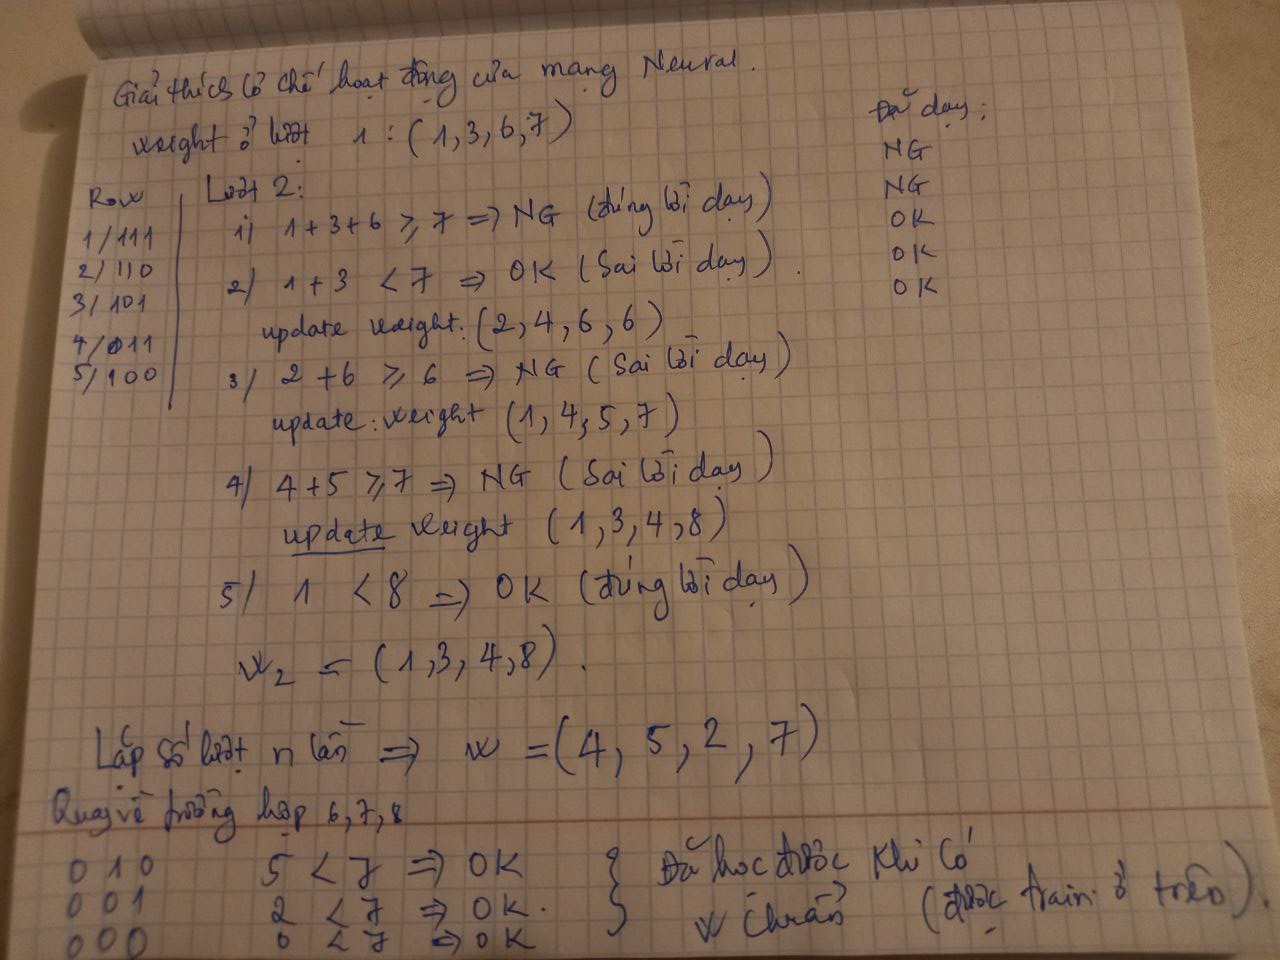 Giải thích cơ chế hoạt động của mạng Neural.
weight ở lượt 1 : (1,3,6,7)
Đã dạy:
NG
NG
OK
OK
OK
Row
1/111
2/110
3/101
4/011
5/100
Lượt 2:
1) 1+3+6 ⩾ 7 => NG (đúng lời dạy)
2) 1+3 < 7 => OK (Sai lời dạy).
update weight: (2,4,6,6)
3) 2+6 ⩾ 6 => NG (Sai lời dạy)
update: weight (1,4,5,7)
4) 4+5 ⩾ 7 => NG (Sai lời dạy)
update weight (1,3,4,8)
5) 1 < 8 => OK (đúng lời dạy)
w₂ = (1,3,4,8).
Lặp số lượt n lần => w = (4,5,2,7)
Quay về trường hợp 6,7,8
0 1 0 5 < 7 => OK
0 0 1 2 < 7 => OK.
0 0 0 0 < 7 => OK
} Đã học được khi có
w chuẩn (được train ở trên).